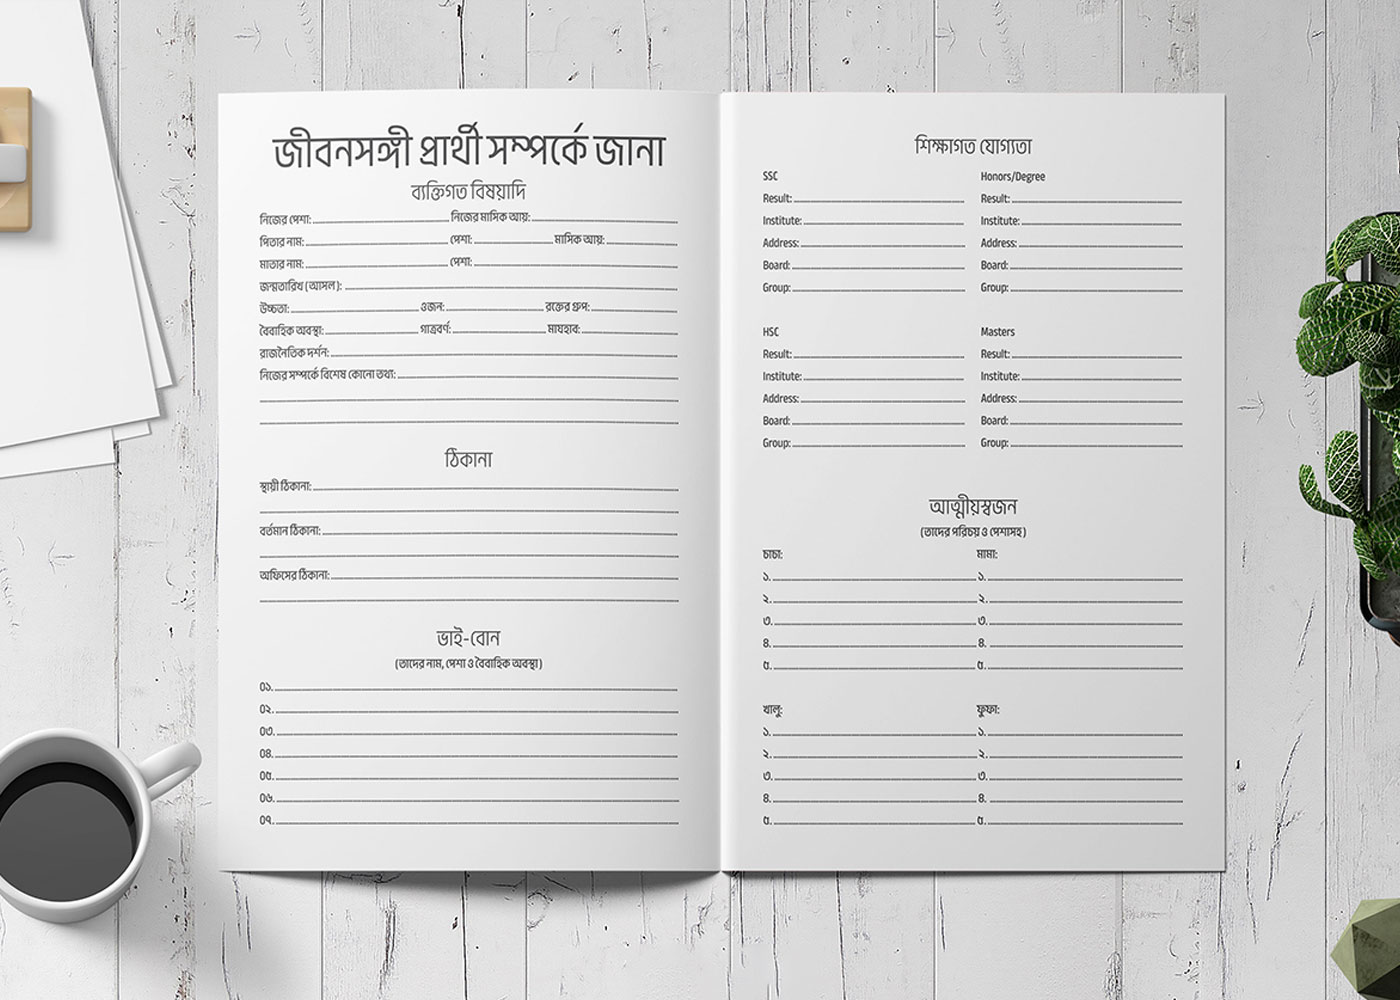 জীবনসঙ্গী প্রার্থী সম্পর্কে জানা
ব্যক্তিগত বিষয়াদি
নিজের পেশা: নিজের মাসিক আয়:
পিতার নাম: পেশা: মাসিক আয়:
মাতার নাম: পেশা:
জন্মতারিখ (আসল):
উচ্চতা: ওজন: রক্তের গ্রুপ:
বৈবাহিক অবস্থা: গাত্রবর্ণ: মাযহাব:
রাজনৈতিক দর্শন:
নিজের সম্পর্কে বিশেষ কোনো তথ্য:
ঠিকানা
স্থায়ী ঠিকানা:
বর্তমান ঠিকানা:
অফিসের ঠিকানা:
ভাই-বোন
(তাদের নাম, পেশা ও বৈবাহিক অবস্থা)
০১.
০২.
০৩.
০৪.
০৫.
০৬.
০৭.
শিক্ষাগত যোগ্যতা
SSC
Result:
Institute:
Address:
Board:
Group:
Honors/Degree
Result:
Institute:
Address:
Board:
Group:
HSC
Result:
Institute:
Address:
Board:
Group:
Masters
Result:
Institute:
Address:
Board:
Group:
আত্মীয়স্বজন
(তাদের পরিচয় ও পেশাসহ)
চাচা:
১.
২.
৩.
৪.
৫.
মামা:
১.
২.
৩.
৪.
৫.
খালু:
১.
২.
৩.
৪.
৫.
ফুফা:
১.
২.
৩.
৪.
৫.